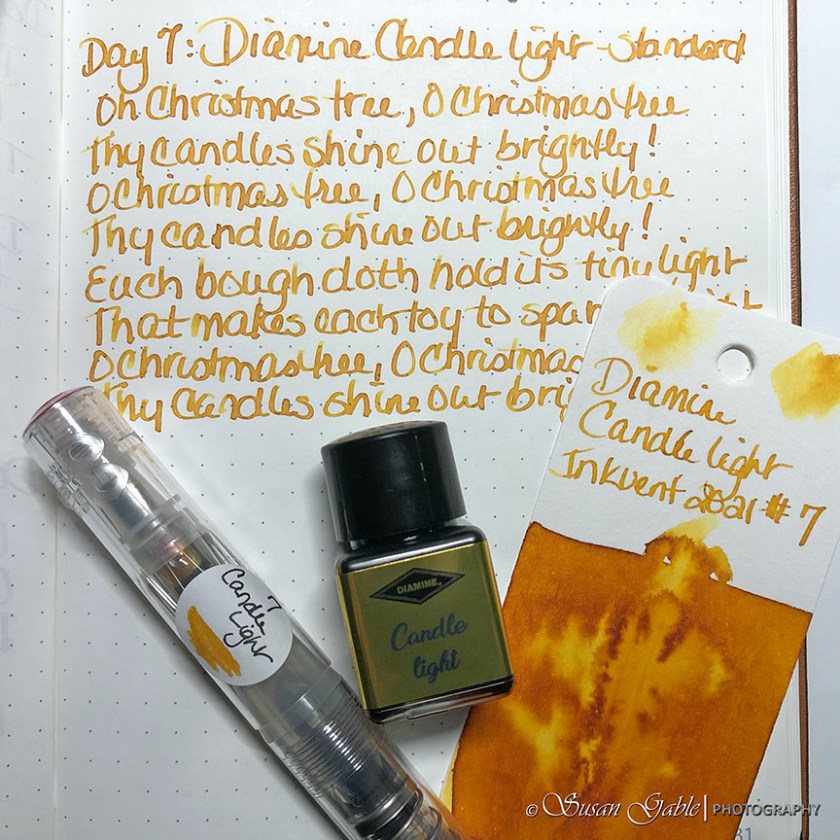 Day 7: Diamine Candle light - Standard
Oh Christmas tree, O Christmas tree
Thy candles shine out brightly!
O Christmas tree, O Christmas tree
Thy candles shine out brightly!
Each bough doth hold its tiny light
That makes each toy to spar
O Christmas tree, O Christmas
Thy Candles shine out bri
Diamine
Candle light
Inkvent 2021 #7
7
Candle
Light
DIAMINE
Candle
light
© Susan Gable | PHOTOGRAPHY
31